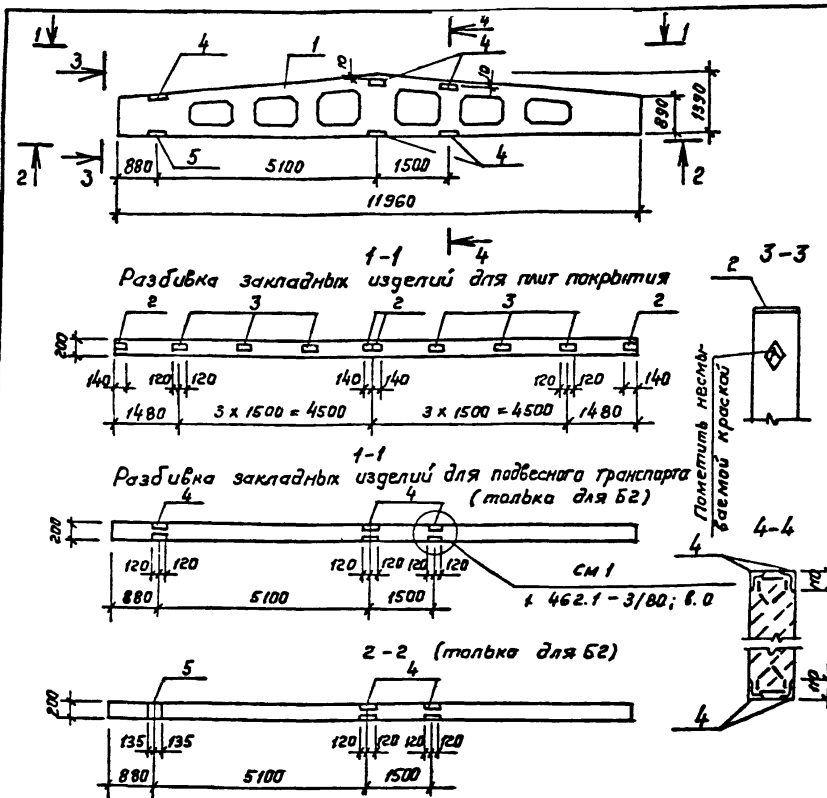 1 4 1 4 4 1
3
10 10
890 1390
2 3 5 4 2
880 5100 1500
11960
4
1-1
Разбивка закладных изделий для плит покрытия
2 3 2 3 2
200
140 120 120 140 140 120 120 140
1480 3 x 1500 = 4500 3 x 1500 = 4500 1480
3-3
2
Пометить несмы-
ваемой краской
1-1
Разбивка закладных изделий для подвесного транспорта
(только для Б2)
4 4
200
120 120 120 120 120 120
880 5100 1500
см 1
1. 462.1 - 3/80; в. 0
4-4
4
110
110
4
2-2 (только для Б2)
5 4
200
135 135 120 120 120 120
880 5100 1500